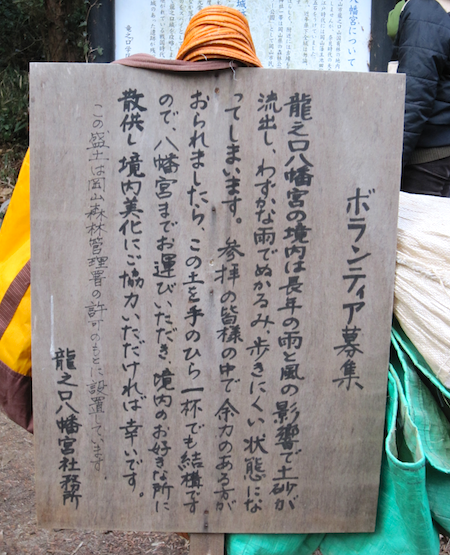 ボランティア募集
龍之口八幡宮の境内は長年の雨と風の影響で土砂が
流出し、わずかな雨でぬかるみ、歩きにくい状態にな
ってしまいます。参拝の皆様の中で余力のある方が
おられましたら、この土を手のひら一杯でも結構です
ので、八幡宮までお運びいただき、境内のお好きな所に
散供し境内美化にご協力いただければ幸いです。
この盛土は岡山森林管理署の許可のもとに設置しています。
龍之口八幡宮社務所